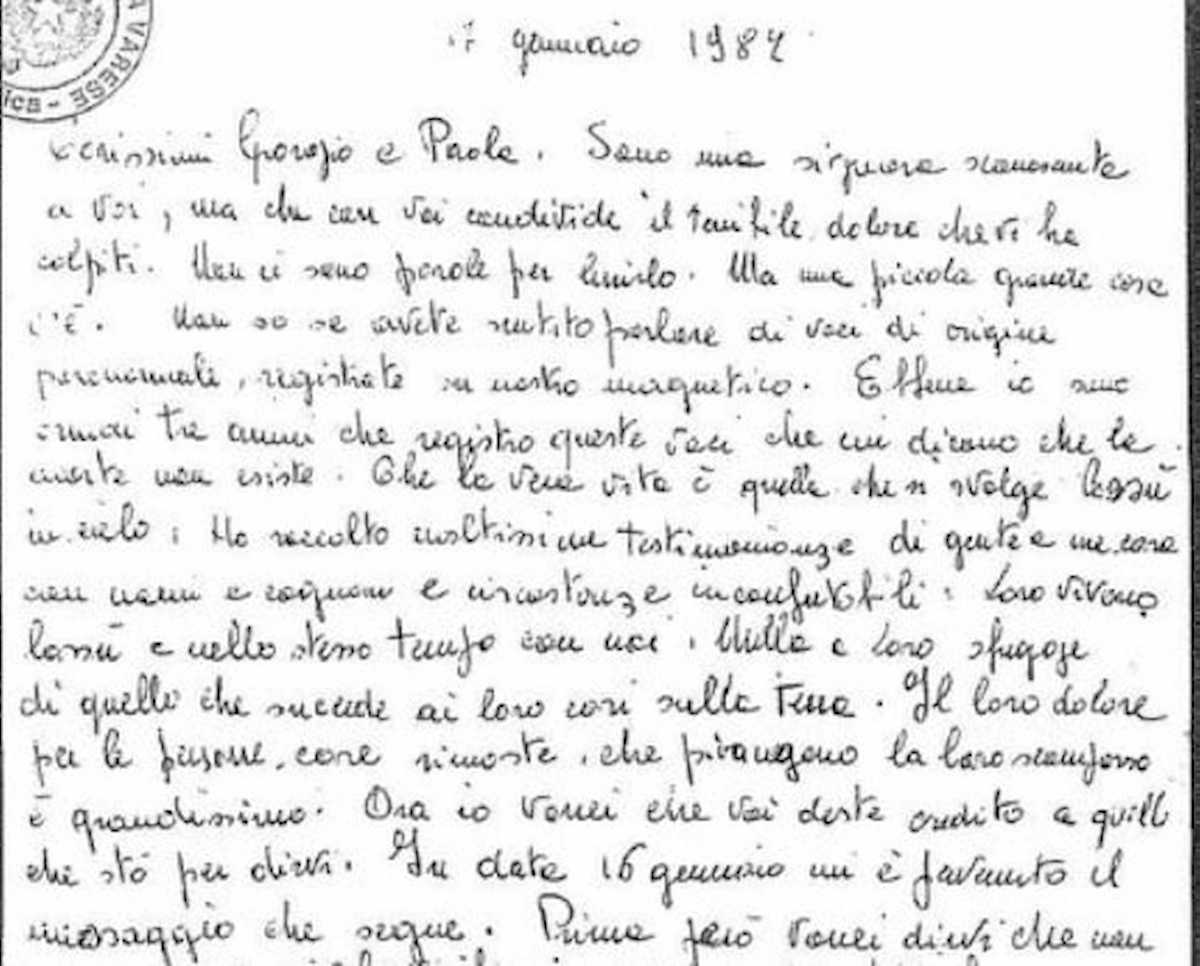 A VARESE
ica -
17 gennaio 1987
Carissimi Giorgio e Paola. Sono una signora sconosciuta
a voi, ma che con voi condivide il terribile dolore che vi ha
colpiti. Non ci sono parole per lenirlo. Ma una piccola grande cosa
c'è. Non so se avete sentito parlare di voci di origine
paranormale, registrate su nastro magnetico. Ebbene io sono
ormai tre anni che registro queste voci che mi dicono che la
morte non esiste. Che la vera vita è quella che si svolge lassù
in cielo. Ho raccolto moltissime testimonianze di gente a me cara
con nomi e cognomi e circostanze inconfutabili. Loro vivono
lassù e nello stesso tempo con noi. Nulla a loro sfugge
di quello che succede ai loro cari sulla terra. Il loro dolore
per le persone care rimaste, che piangono la loro scomparsa
è grandissimo. Ora io vorrei che voi deste credito a quello
che stò per dirvi. In data 16 gennaio mi è pervenuto il
messaggio che segue. Prima però vorrei dirvi che non